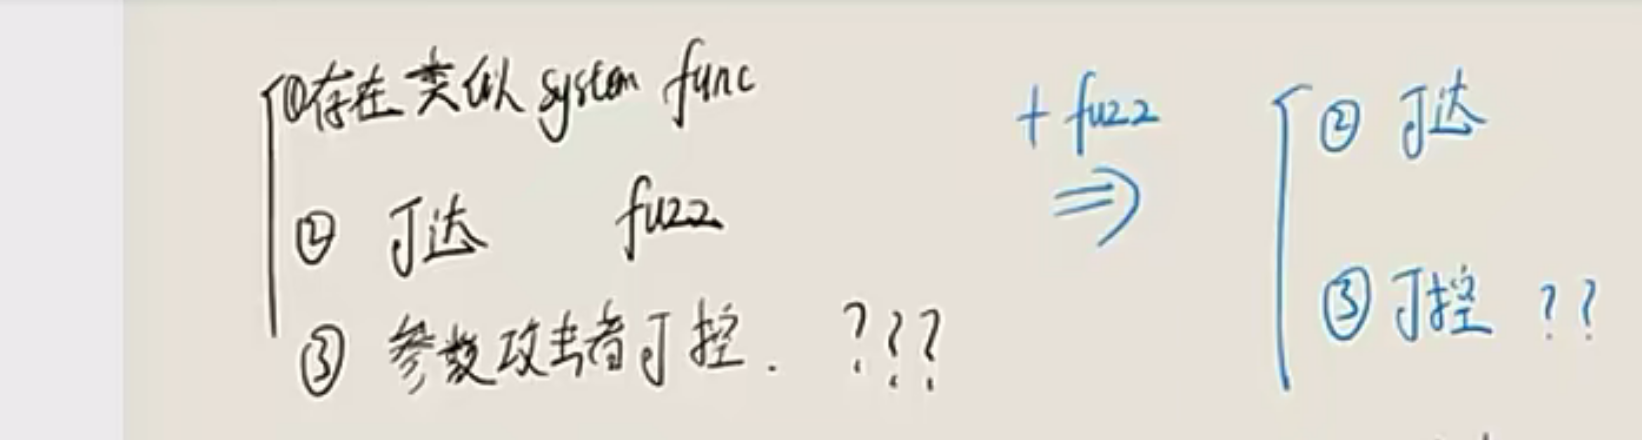 ①存在类似 system func
② 可达 fuzz
③ 参数攻击者可控. ???
+ fuzz
⇒
② 可达
③ 可控 ??